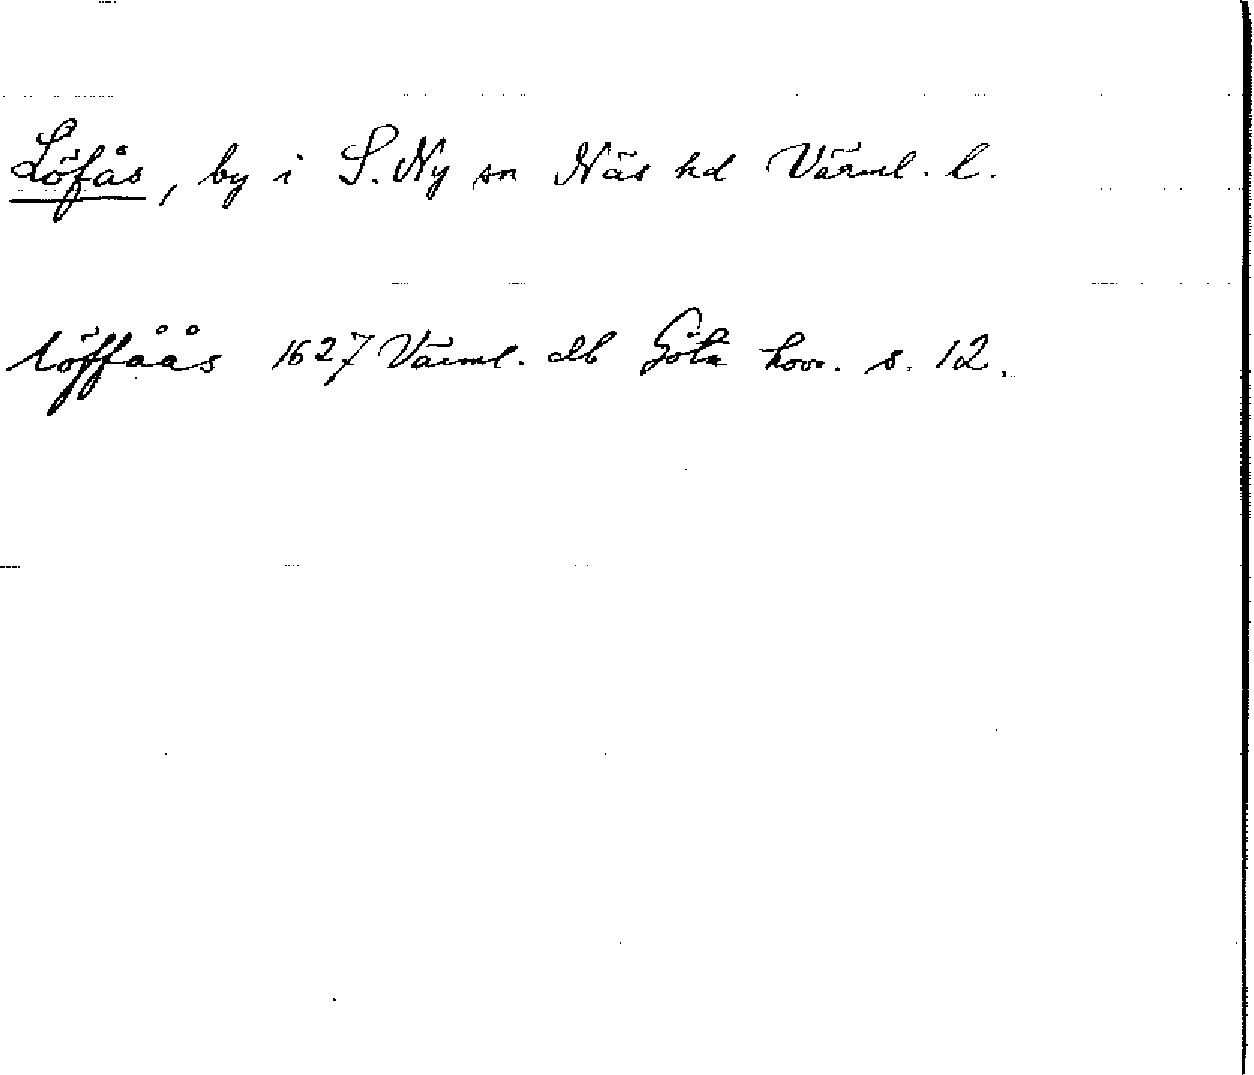 Löfås, by i S. Ny sn Näs hd Värml. l.
löffåås 1627 Värml. db Göta hovr. s. 12.